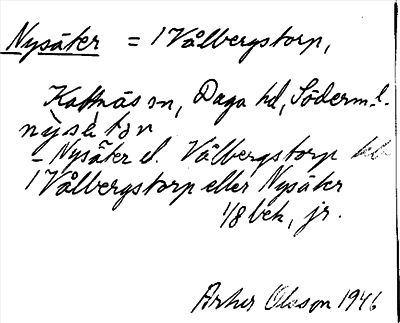 Nysäter = 1 Vålbergstorp,
Kattnäs sn, Daga hd, Söderm. l.
nỳsètǝr
– Nysäter el. Vålbergstorp
1 Vålbergstorp eller Nysäter
1/8 beh, jr.
Arthur Olsson 1946